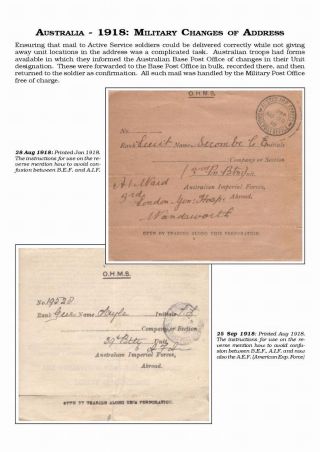 AUSTRALIA - 1918: MILITARY CHANGES OF ADDRESS
Ensuring that mail to Active Service soldiers could be delivered correctly while not giving
away unit locations in the address was a complicated task. Australian troops had forms
available in which they informed the Australian Base Post Office of changes in their Unit
designation. These were forwarded to the Base Post Office in bulk, recorded there, and then
returned to the soldier as confirmation. All such mail was handled by the Military Post Office
free of charge.
O.H.M.S.
No.
Rank Lieut Name Secombe C E Initials
Company or Section
(3rd Pn Btn) Unit,
Australian Imperial Forces,
Abroad.
A1 Ward
3rd
London Gen: Hosp:
Wandsworth
OPEN BY TEARING ALONG THIS PERFORATION.
28 Aug 1918: Printed Jan 1918.
The instructions for use on the re-
verse mention how to avoid con-
fusion between B.E.F. and A.I.F.
O.H.M.S.
No. 19528
Rank Name Initials
Company or Section
39th Unit,
Australian Imperial Forces,
Abroad.
OPEN BY TEARING ALONG THIS PERFORATION.
25 Sep 1918: Printed Aug 1918.
The instructions for use on the
reverse mention how to avoid confu-
sion between B.E.F., A.I.F. and now
also the A.E.F. (American Exp. Force)